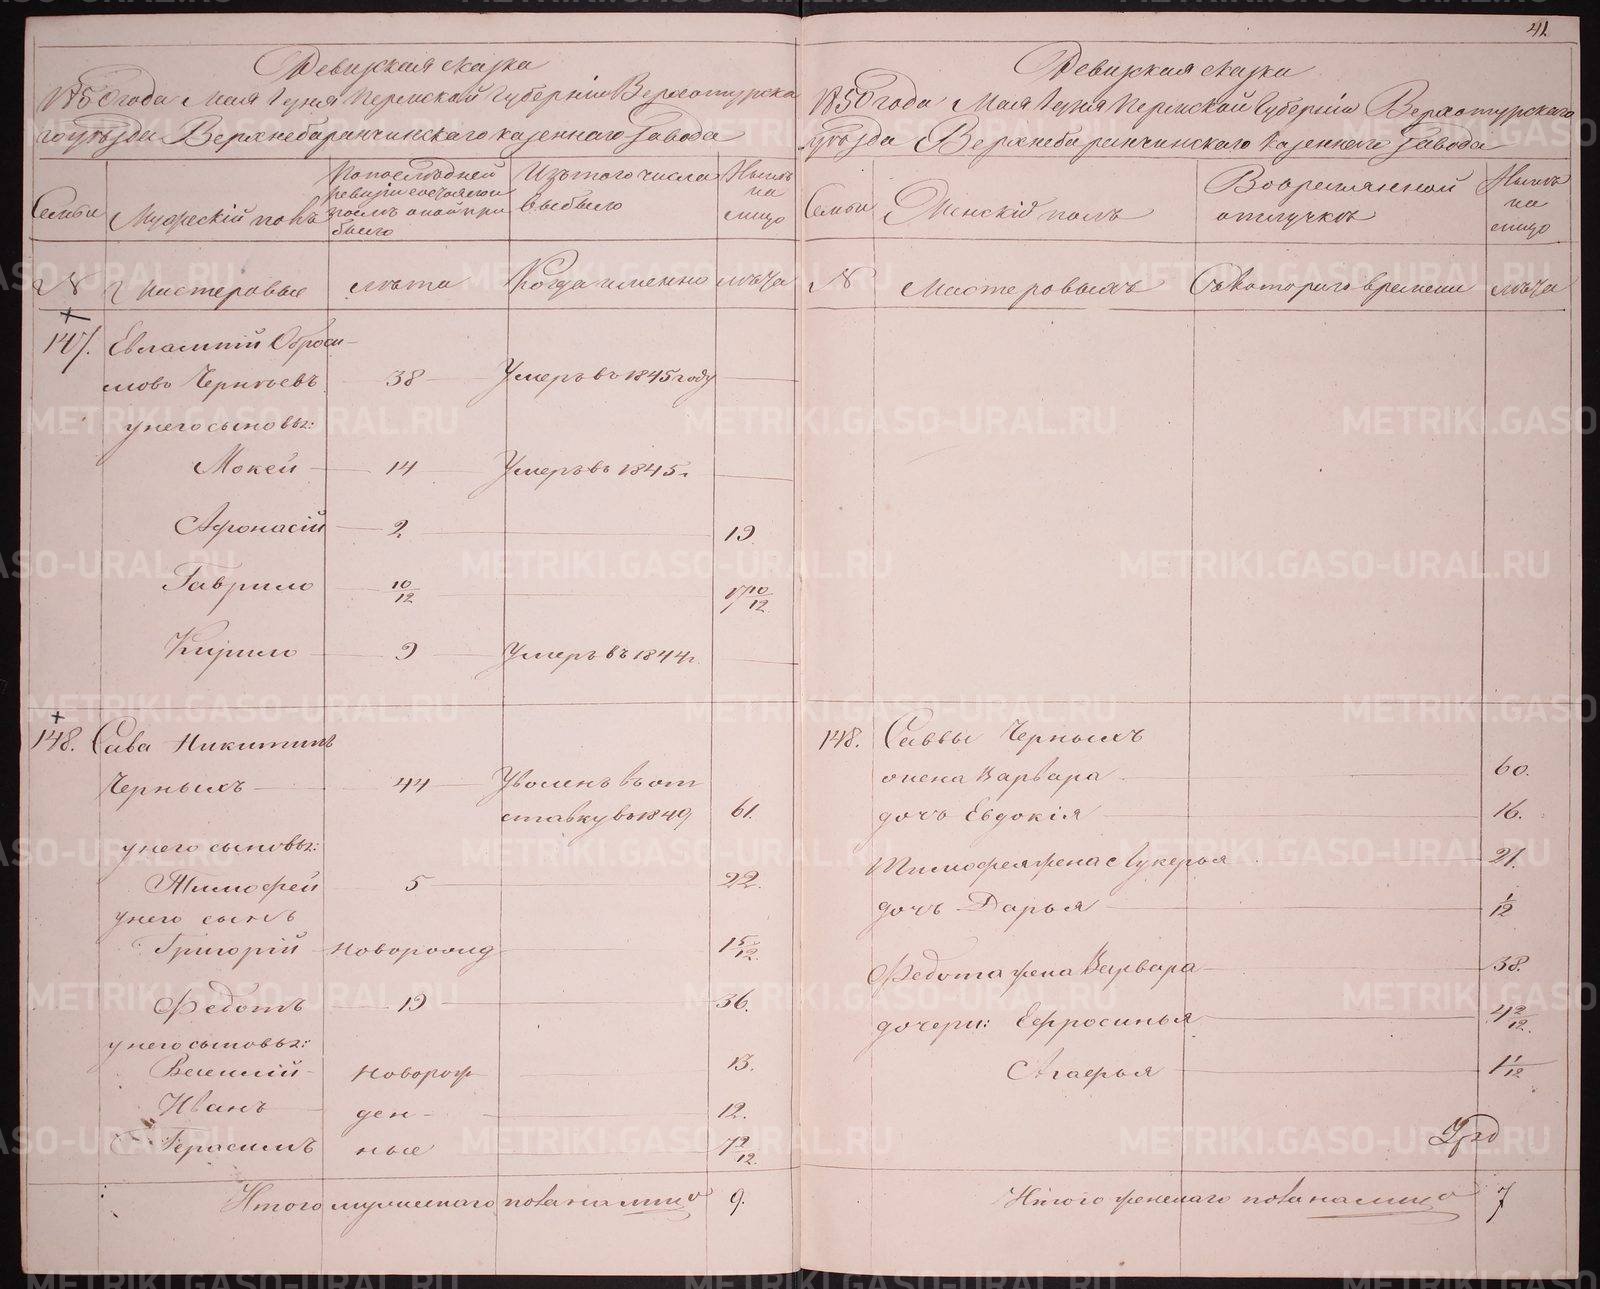 41.
Ревизская сказка
1850 года Мая 1 дня Пермской Губерніи Верхотурска
го уѣзда Верхнебаранчинскаго казеннаго завода
Семьи
Мужескій полъ
По последней
ревизіи состояло и
послѣ оной при
было
Изъ того числа
выбыло
Нынѣ
на
лицо
№
Мастеровые
лѣта
Когда именно
лѣта
147.
Евлампій Аброси-
мовъ Черноевъ
38
Умеръ въ 1845 году
у него сыновья:
Мокей
14
Умеръ въ 1845 г.
Афонасій
2.
19
Гаврило
10/12
17 10/12
Кирило
9
Умеръ въ 1844 г.
148.
Сава Никитинъ
Черныхъ
44
Уволенъ въ от
ставку въ 1849
61.
у него сыновья:
Тимофей
5
22.
у него сынъ
Григорій
новорожд
1 5/12.
Федотъ
19
36.
у него сыновья:
Василій
новорож
13.
Иванъ
ден-
12.
Герасимъ
ные
7 2/12.
Итого мужескаго пола на лицо
9.
Ревизская сказка
1850 года Мая 1 дня Пермской Губерніи Верхотурскаго
уѣзда Верхнебаранчинскаго казеннаго завода
Семьи
Женскій полъ
Во временной
отлучкѣ
Нынѣ
на
лицо
№
Мастеровыхъ
Съ котораго времени
лѣта
148.
Саввы Черныхъ
жена Варвара
60.
дочь Евдокія
16.
Тимофея жена Лукерья
21.
дочь Дарья
1/12
Федота жена Варвара
38.
дочери: Ефросинья
4 2/12.
Агафья
1 1/12
Итого женскаго пола на лицо
7
METRIKI.GASO-URAL.RU